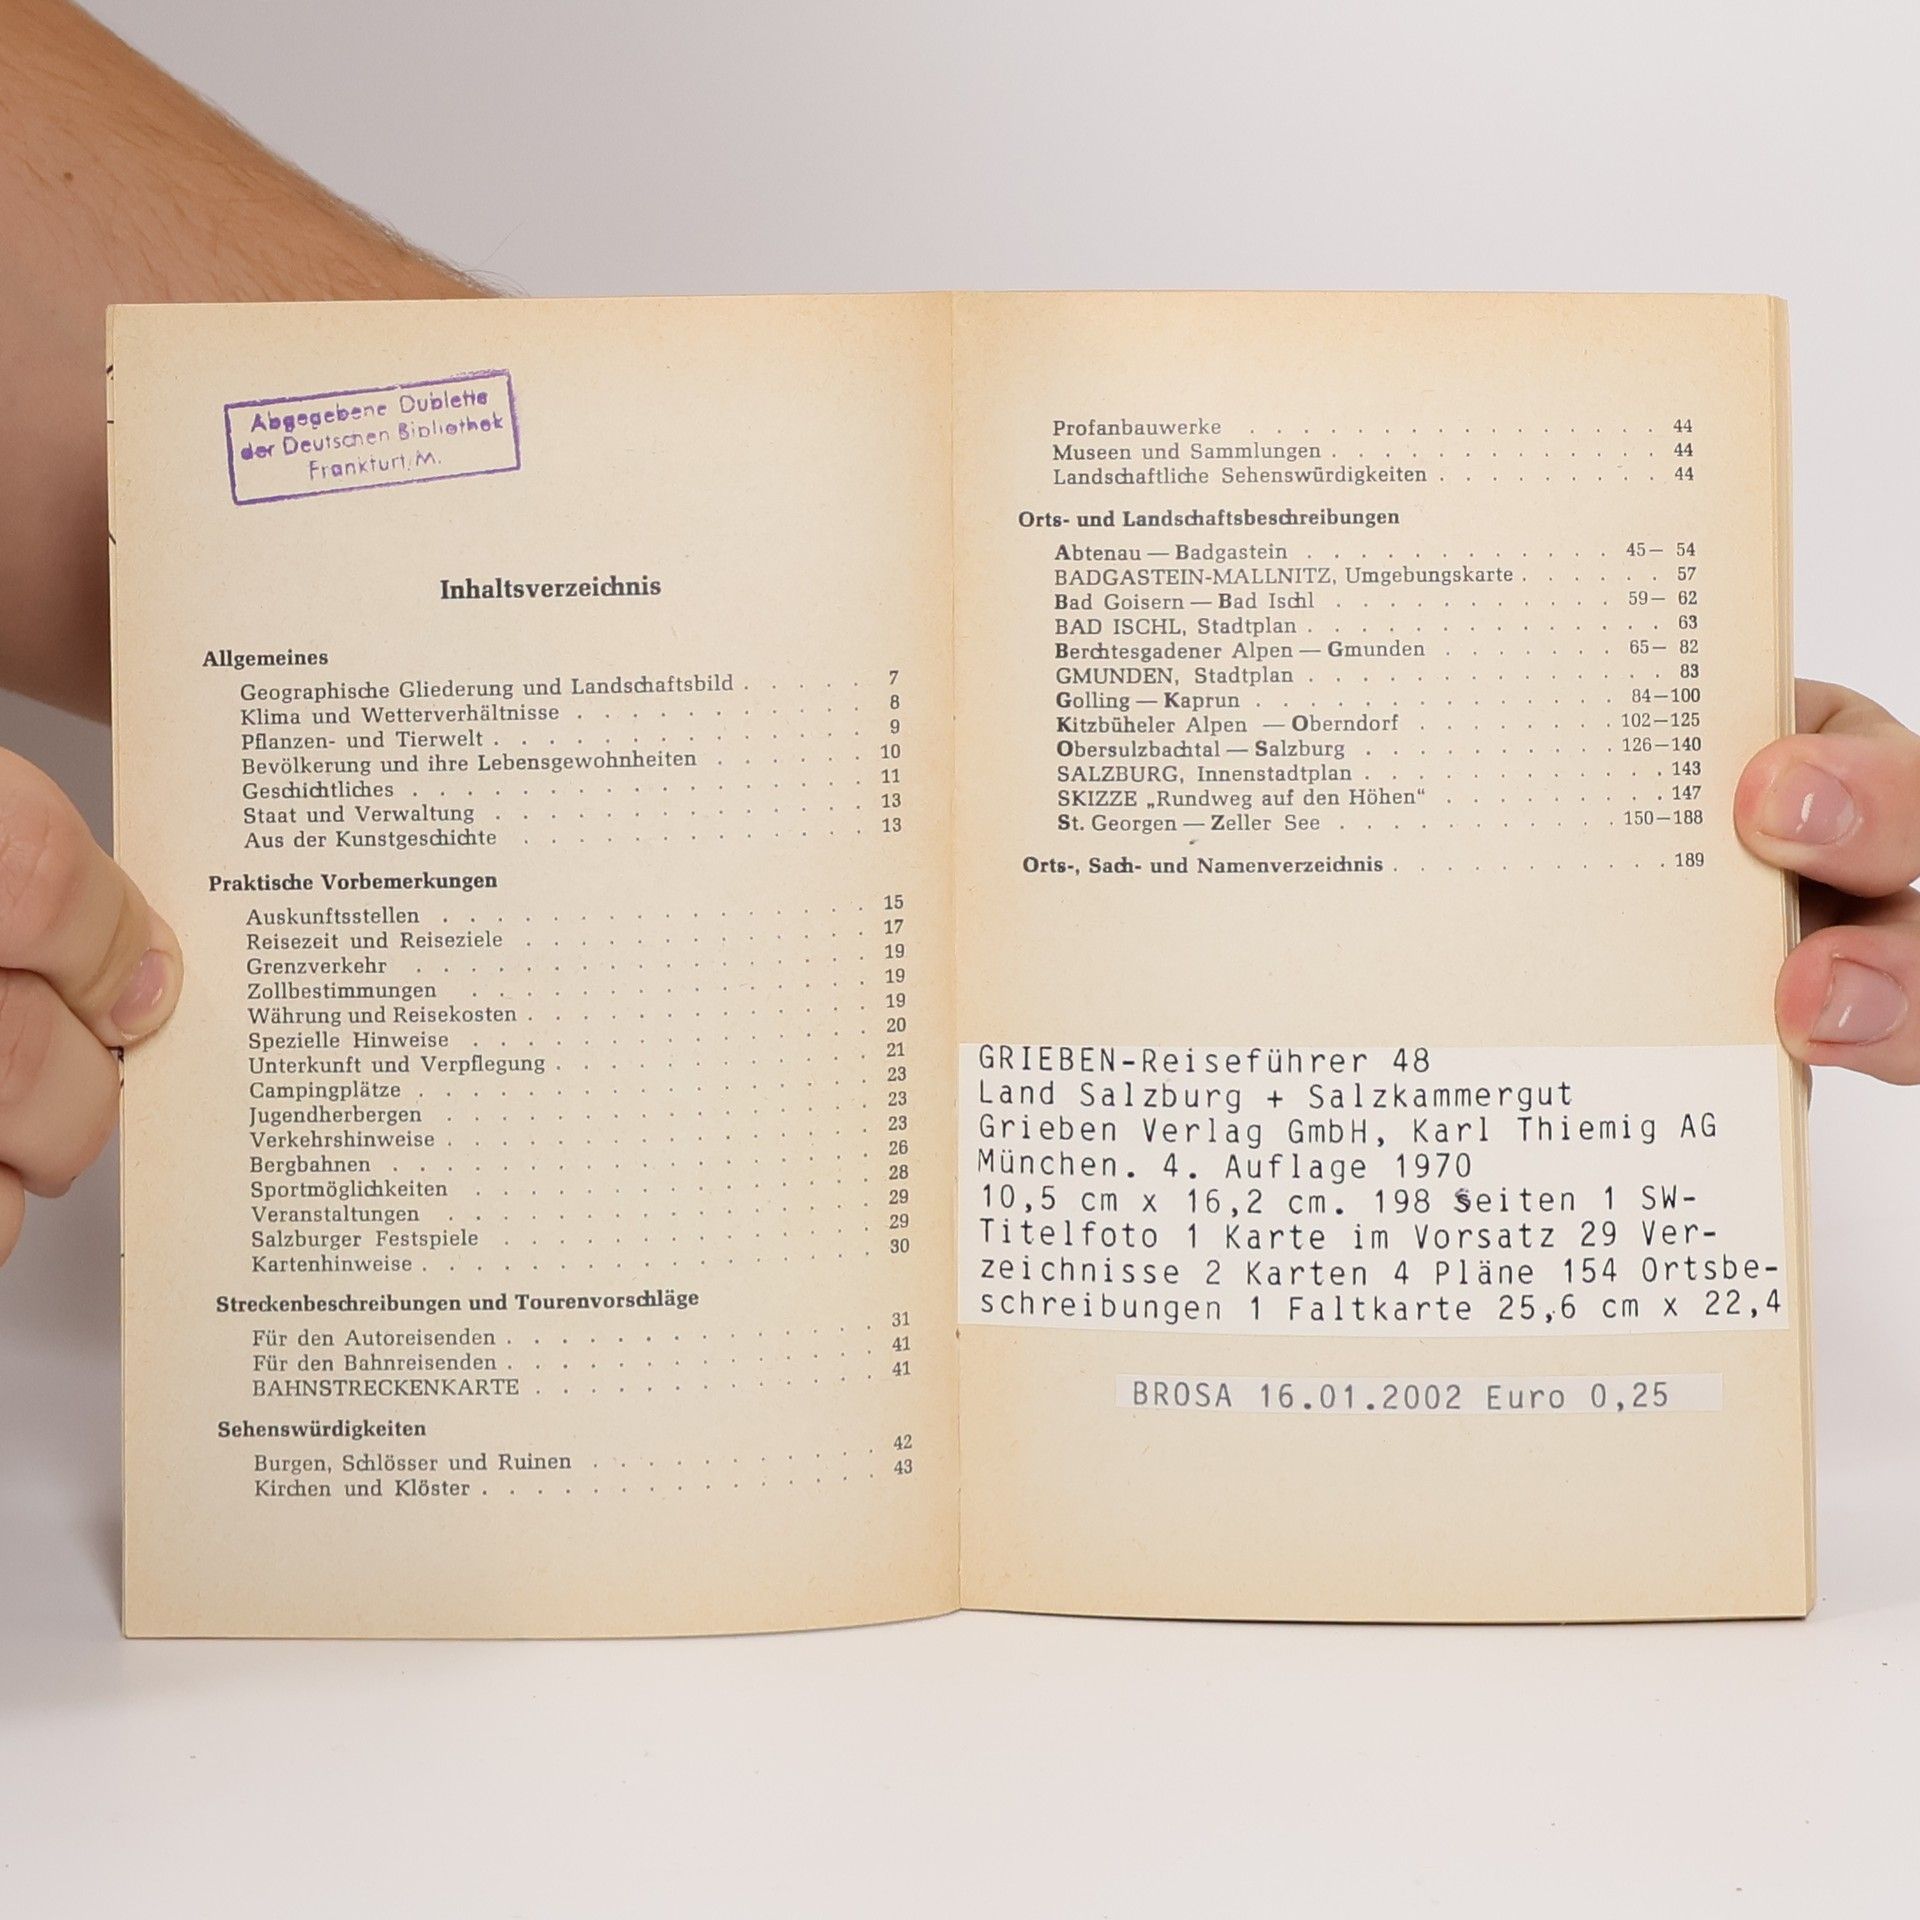 Abgegebene Dublette
der Deutschen Bibliothek
Frankfurt/M.
Inhaltsverzeichnis
Allgemeines
Geographische Gliederung und Landschaftsbild . . . . . 7
Klima und Wetterverhältnisse . . . . . . . . . . . 8
Pflanzen- und Tierwelt . . . . . . . . . . . . . . 9
Bevölkerung und ihre Lebensgewohnheiten . . . . . . 10
Geschichtliches . . . . . . . . . . . . . . . . . 11
Staat und Verwaltung . . . . . . . . . . . . . . 13
Aus der Kunstgeschichte . . . . . . . . . . . . . 13
Praktische Vorbemerkungen
Auskunftsstellen . . . . . . . . . . . . . . . . 15
Reisezeit und Reiseziele . . . . . . . . . . . . . 17
Grenzverkehr . . . . . . . . . . . . . . . . . 19
Zollbestimmungen . . . . . . . . . . . . . . . 19
Währung und Reisekosten . . . . . . . . . . . . . 19
Spezielle Hinweise . . . . . . . . . . . . . . . 20
Unterkunft und Verpflegung . . . . . . . . . . . . 21
Campingplätze . . . . . . . . . . . . . . . . . 23
Jugendherbergen . . . . . . . . . . . . . . . . 23
Verkehrshinweise . . . . . . . . . . . . . . . . 23
Bergbahnen . . . . . . . . . . . . . . . . . . 26
Sportmöglichkeiten . . . . . . . . . . . . . . . 28
Veranstaltungen . . . . . . . . . . . . . . . . 29
Salzburger Festspiele . . . . . . . . . . . . . . 29
Kartenhinweise . . . . . . . . . . . . . . . . . 30
Streckenbeschreibungen und Tourenvorschläge
Für den Autoreisenden . . . . . . . . . . . . . . 31
Für den Bahnreisenden . . . . . . . . . . . . . . 41
BAHNSTRECKENKARTE . . . . . . . . . . . . . 41
Sehenswürdigkeiten
Burgen, Schlösser und Ruinen . . . . . . . . . . . 42
Kirchen und Klöster . . . . . . . . . . . . . . . 43
Profanbauwerke . . . . . . . . . . . . . . . . 44
Museen und Sammlungen . . . . . . . . . . . . . 44
Landschaftliche Sehenswürdigkeiten . . . . . . . . . 44
Orts- und Landschaftsbeschreibungen
Abtenau — Badgastein . . . . . . . . . . . . 45— 54
BADGASTEIN-MALLNITZ, Umgebungskarte . . . . . . 57
Bad Goisern — Bad Ischl . . . . . . . . . . . 59— 62
BAD ISCHL, Stadtplan . . . . . . . . . . . . . . 63
Berchtesgadener Alpen — Gmunden . . . . . . . 65— 82
GMUNDEN, Stadtplan . . . . . . . . . . . . . . 83
Golling — Kaprun . . . . . . . . . . . . . . 84—100
Kitzbüheler Alpen — Oberndorf . . . . . . . . 102—125
Obersulzbachtal — Salzburg . . . . . . . . . . 126—140
SALZBURG, Innenstadtplan . . . . . . . . . . . . 143
SKIZZE „Rundweg auf den Höhen“ . . . . . . . . . 147
St. Georgen — Zeller See . . . . . . . . . . . 150—188
Orts-, Sach- und Namenverzeichnis . . . . . . . . . . . 189
GRIEBEN-Reiseführer 48
Land Salzburg + Salzkammergut
Grieben Verlag GmbH, Karl Thiemig AG
München. 4. Auflage 1970
10,5 cm x 16,2 cm. 198 Seiten 1 SW-
Titelfoto 1 Karte im Vorsatz 29 Ver-
zeichnisse 2 Karten 4 Pläne 154 Ortsbe-
schreibungen 1 Faltkarte 25,6 cm x 22,4
BROSA 16.01.2002 Euro 0,25